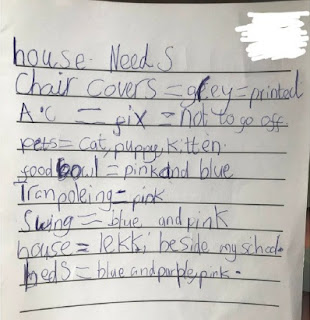 house. Needs
Chair Covers = grey = printed
A.C = fix = not to go off
pets = cat, puppy, kitten.
food bowl = pink and blue
Tranpoleing = pink
Swing = blue and pink
house = lekki beside my school.
beds = blue and purple, pink.